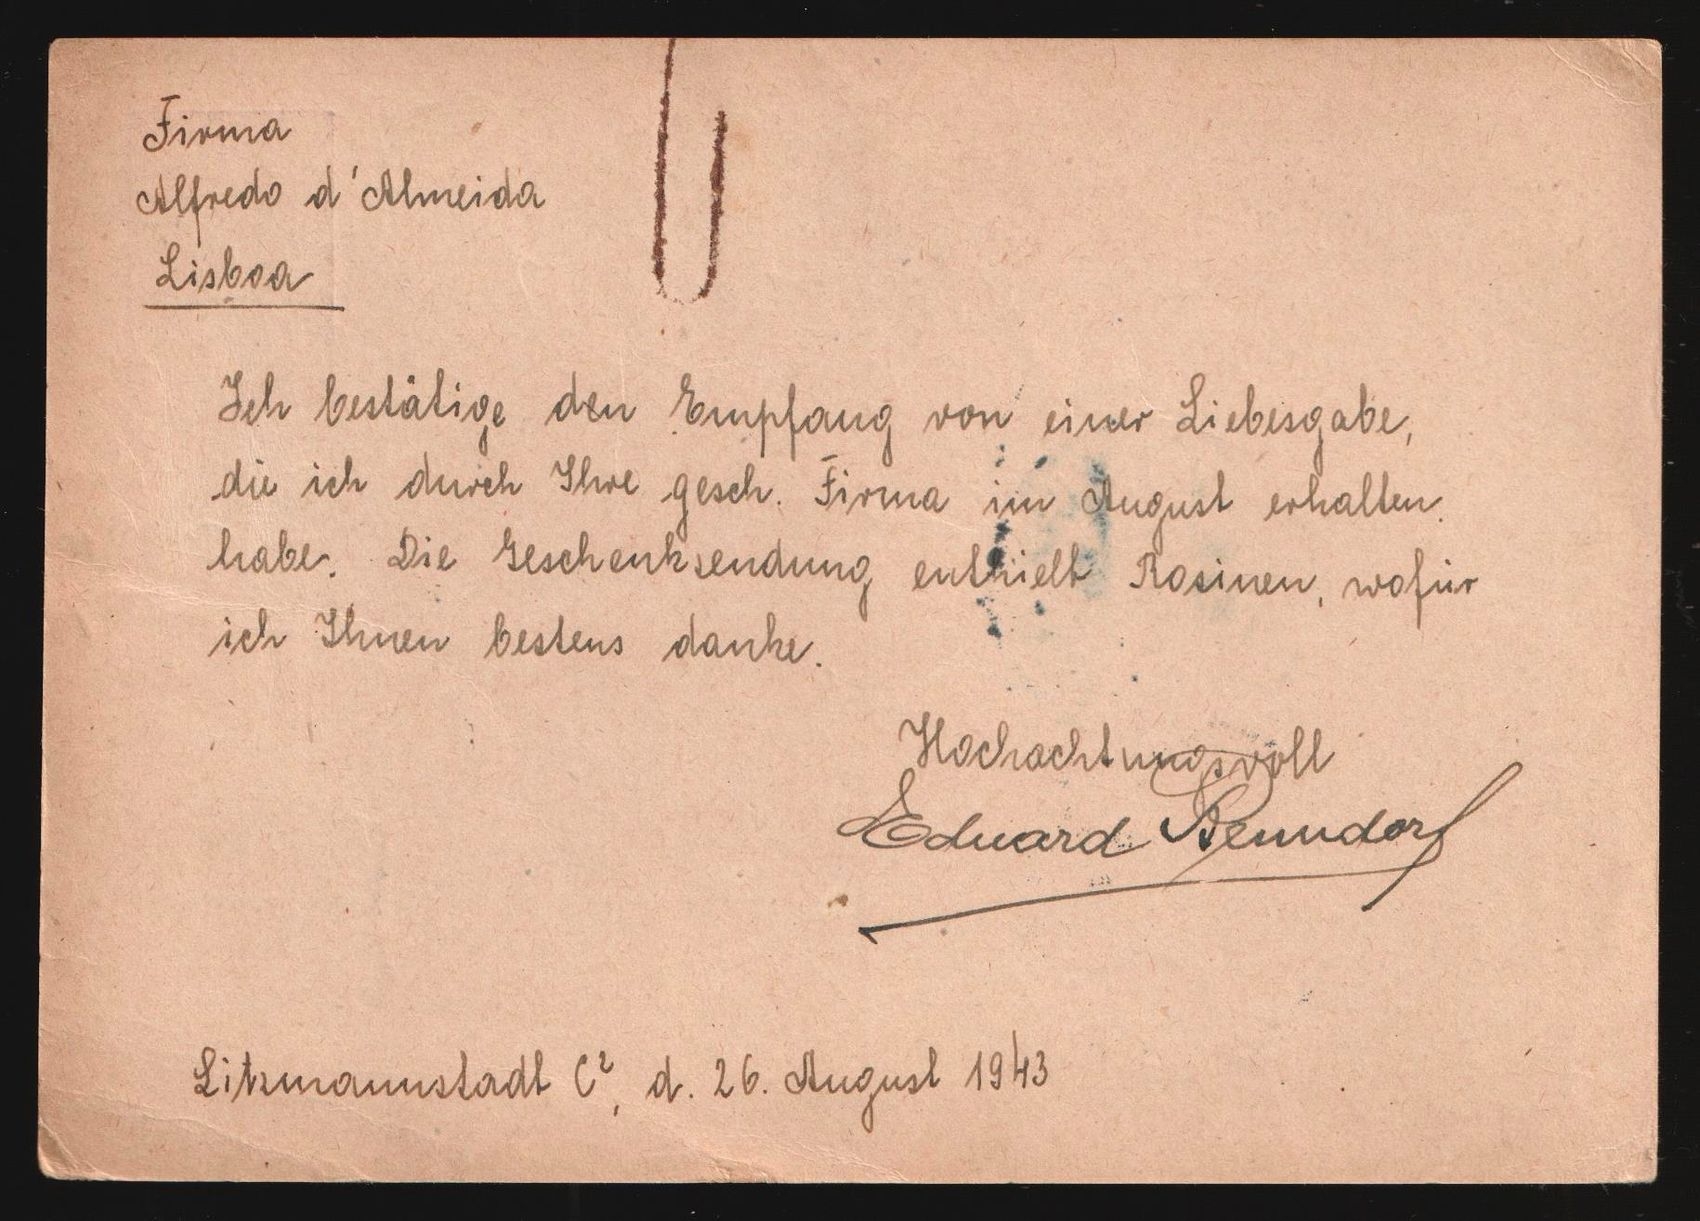 Firma
Alfredo d'Almeida
Lisboa
Ich bestätige den Empfang von einer Liebesgabe,
die ich durch Ihre gesch. Firma im August erhalten
habe. Die Geschenksendung enthielt Rosinen, wofür
ich Ihnen bestens danke.
Hochachtungsvoll
Eduard Benndorf
Litzmannstadt C², d. 26. August 1943